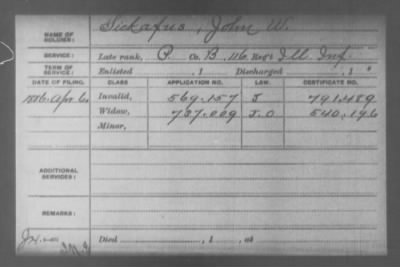 NAME OF SOLDIER: Sickafus, John W.
SERVICE: Late rank, P Co. B, 116 Reg't Ill Inf.
TERM OF SERVICE: Enlisted , 1 Discharged , 1
DATE OF FILING. CLASS. APPLICATION NO. LAW. CERTIFICATE NO.
1886. Apr 6. Invalid, 569.157 J 791.489
Widow, 737.009 J.O 540.196
Minor,
ADDITIONAL SERVICES:
REMARKS:
Died , 1 , at